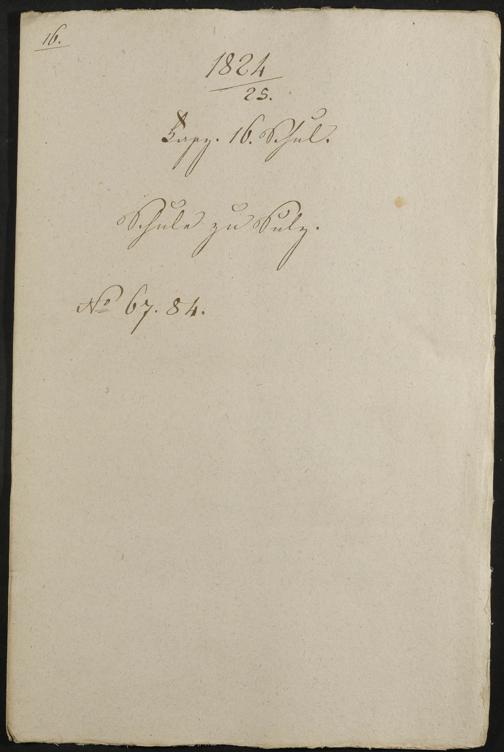 16.
1824
25.
16. Schul.
Schule zu Sulz.
No 67. 84.